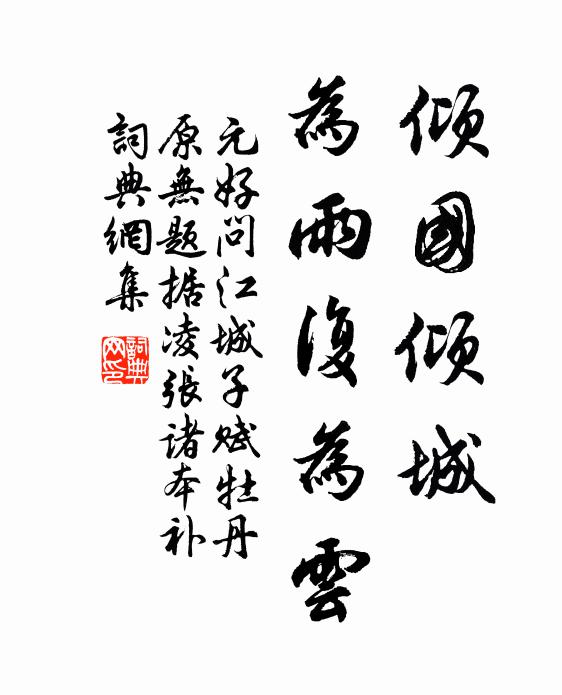 倾國倾城
為雨復為雲
元好问江城子赋牡丹
原無题据凌張诸本补
詞典網集
詞典网印